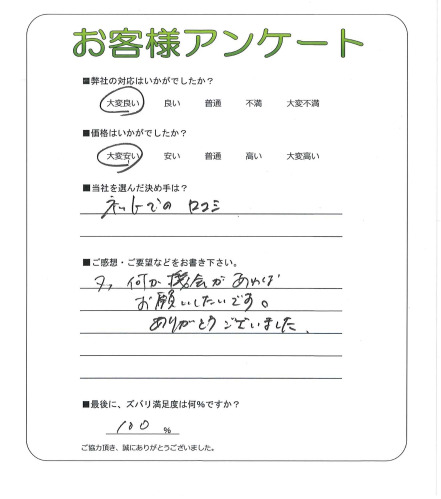 お客様アンケート
■弊社の対応はいかがでしたか？
大変良い 良い 普通 不満 大変不満
■価格はいかがでしたか？
大変安い 安い 普通 高い 大変高い
■当社を選んだ決め手は？
ネットでの 口コミ
■ご感想・ご要望などをお書き下さい。
又、何か機会があれば
お願いしたいです。
ありがとうございました。
■最後に、ズバリ満足度は何％ですか？
100 %
ご協力頂き、誠にありがとうございました。